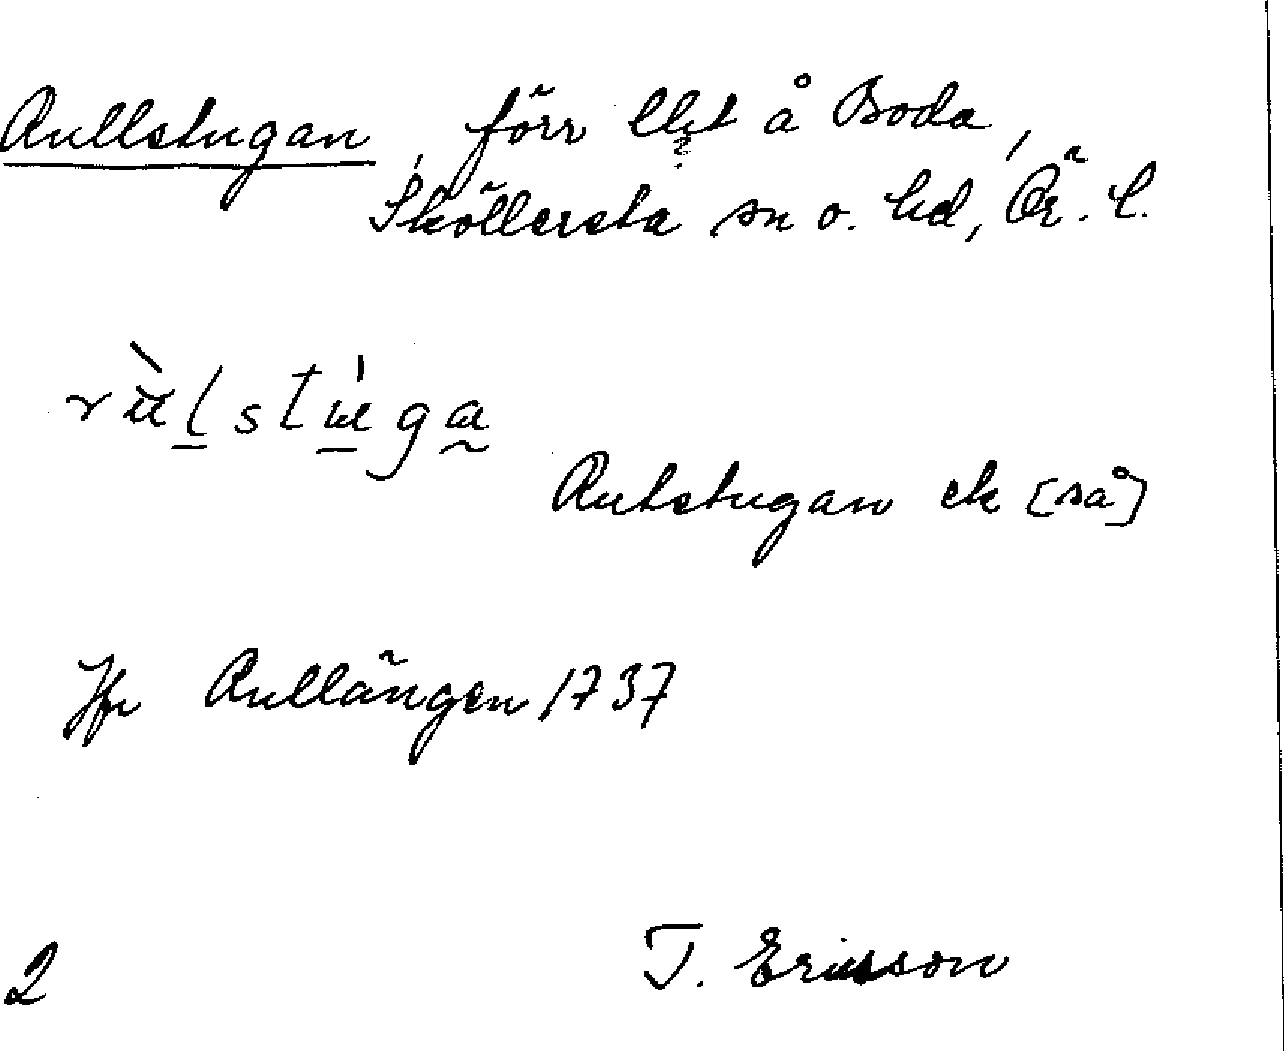 Rullstugan förr llt å Boda,
Sköllersta sn o. hd, Ör. l.
Rutstugan ek [så]
Jfr Rullängen 1737
2 T. Ericsson